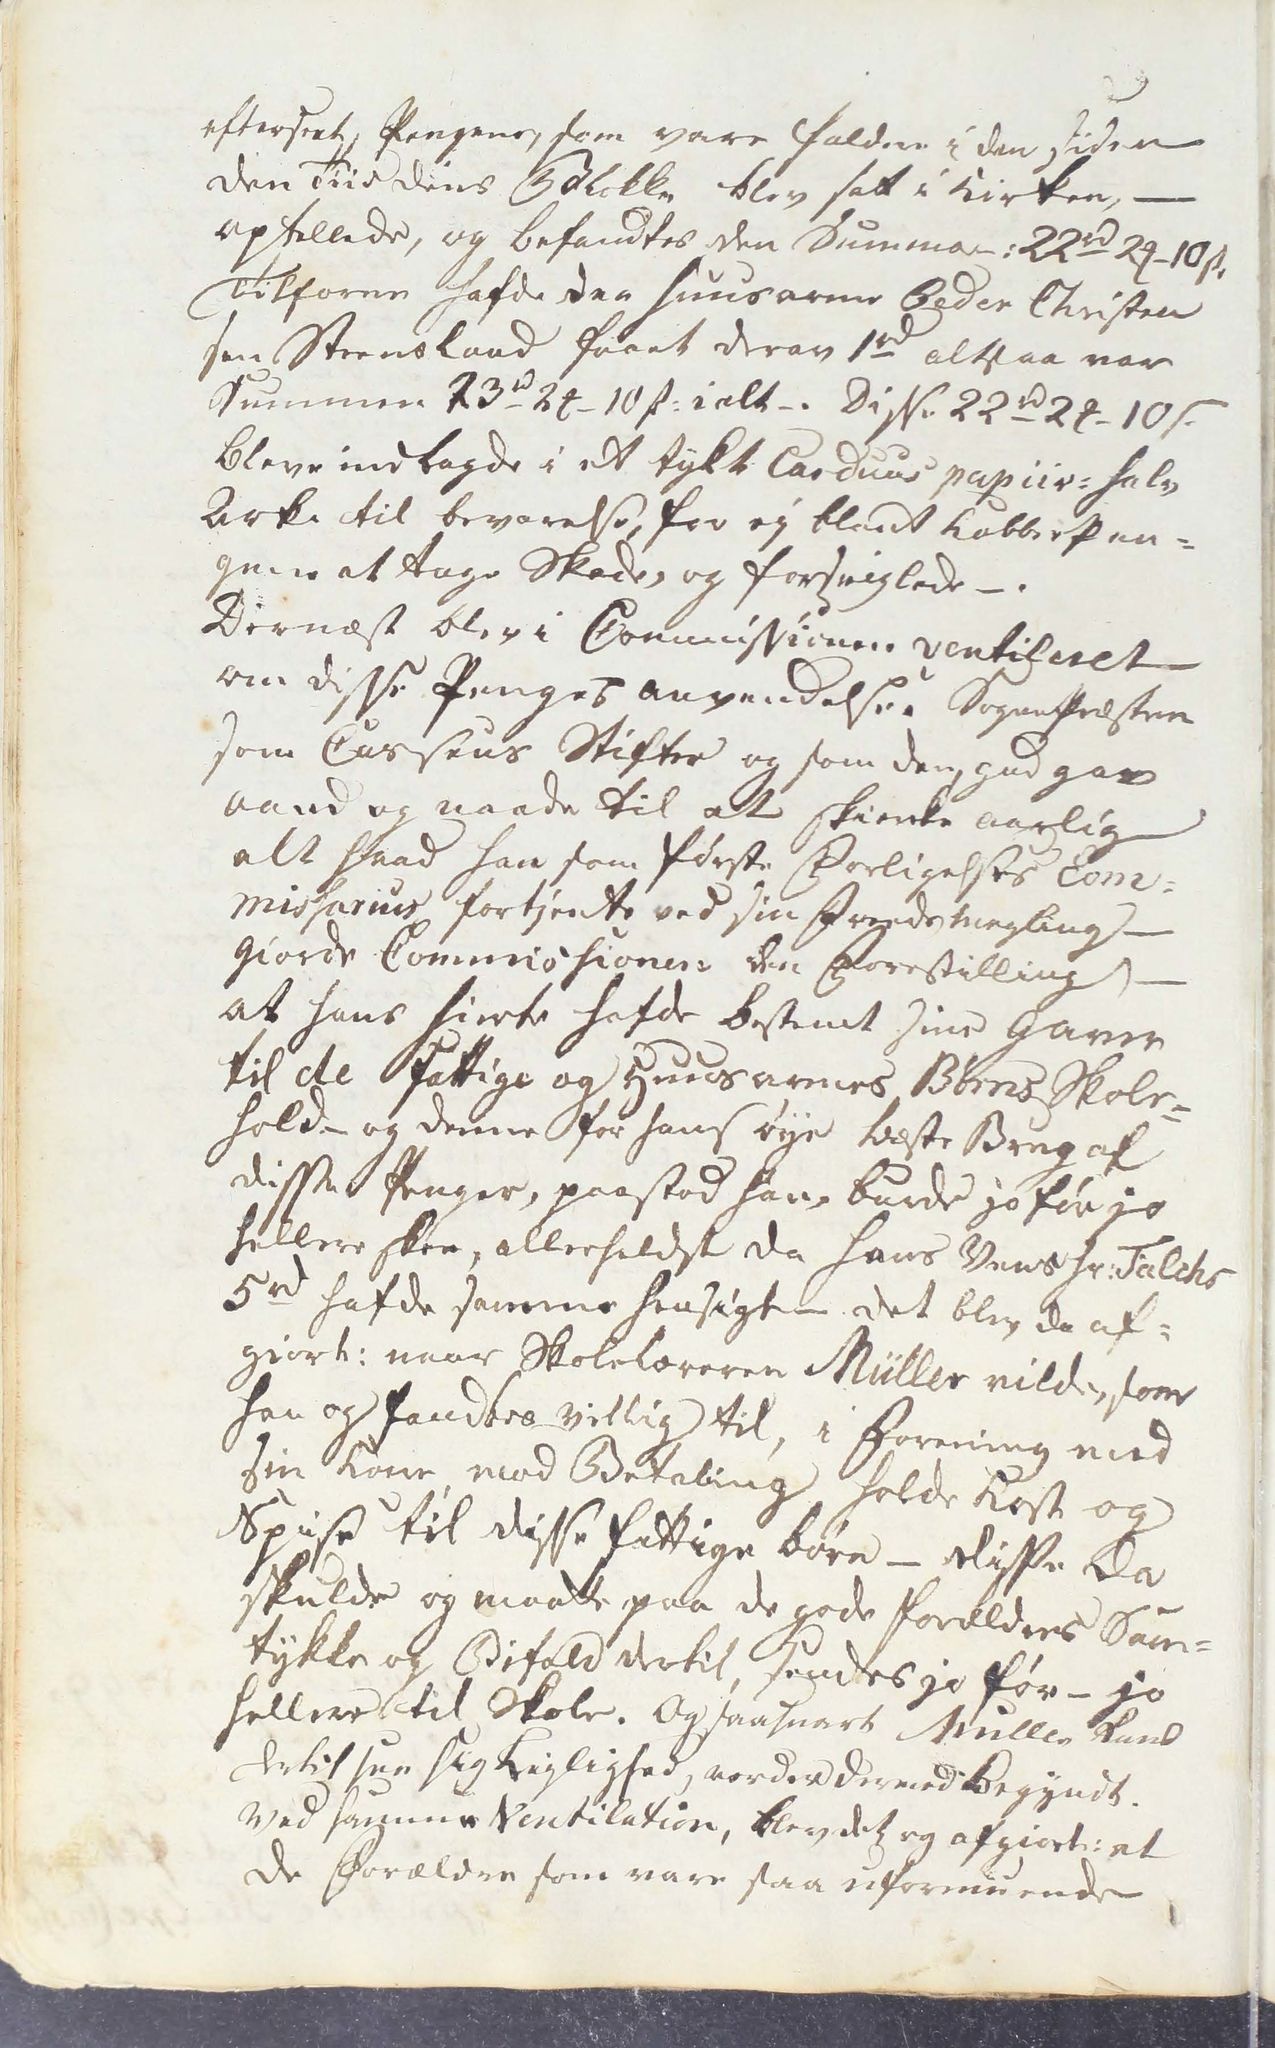 efterseet, Pengene, som vare falden i den siden
den Tiid dens Blokke blev satt i Kirken, —
optællede, og befandtes den Summa: 22rd 2ȝ - 10 s.
Tilforne hafde den huusarme Peder Christen
sen Steensland faaet derav 1rd altsaa var
Summen 23rd 2ȝ - 10 s: i alt -. Disse 22rd 2ȝ - 10 s.
bleve indlagde i et tykt Carduus papiir= halv
Arke til bevarelse, for ej blant Kobberpen=
gene at tage Skade, og forseiglede -.
Dernæst blev i Commissionen ventileret
om disse Penges anvendelse. SognePræsten
som Cassens Stifter og som den, gud gav
aand og naade til at skienke aarlig
alt hvad han som første Forligelses Com=
missarius fortjente ved sin Fredsmegling —
giorde Commissionen den Forestilling, —
at hans hierte hafde bestemt sine gaver
til de Fattige og Huusarmes Børns Skole=
hold - og denne for hans øye beste Brug af
disse Penger, paastod han, burde jo før jo
hellere skee, allerheldst da hans Vens hr: Falchs
5rd hafde samme hensigt - det blev da af=
giort: naar Skolelæreren Müller vilde, som
han og fandtes villig til, i Forening med
sin Kone, mod Betaling holde Kost og
Spiise til disse fattige børn - disse da
skulde og maatte paa de gode forældres Sam=
tykke og Bifald dertil, sendes jo før - jo
hellere til Skole. Og saasnart Müller kand
dertil see sig Leylighed, vorder dermed begyndt.
Ved samme Ventilation, blev det og afgiort: at
de Forældre som vare saa uformuende